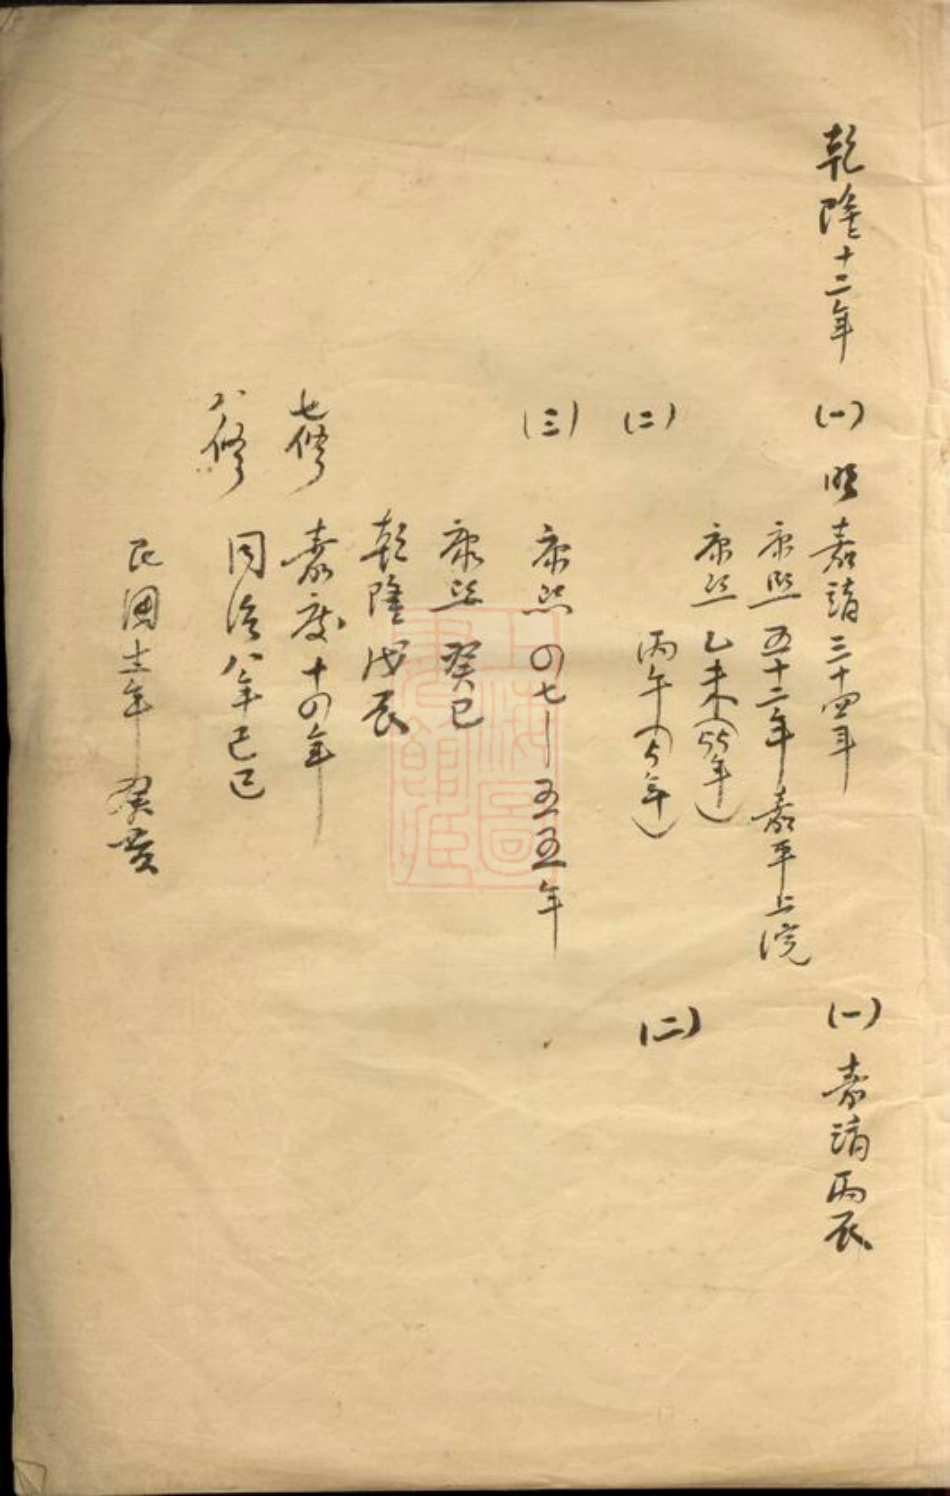 乾隆十二年
(一) 明 嘉靖三十四年
康熙五十二年嘉平上浣
康熙乙未(55年)
(二) 丙午(5年)
(三) 康熙四七—五五年
康熙癸巳
乾隆戊辰
七修 嘉慶十四年
八修 同治八年己巳
民國十二年癸亥
(一) 嘉靖丙辰
(二)
上海圖書館藏